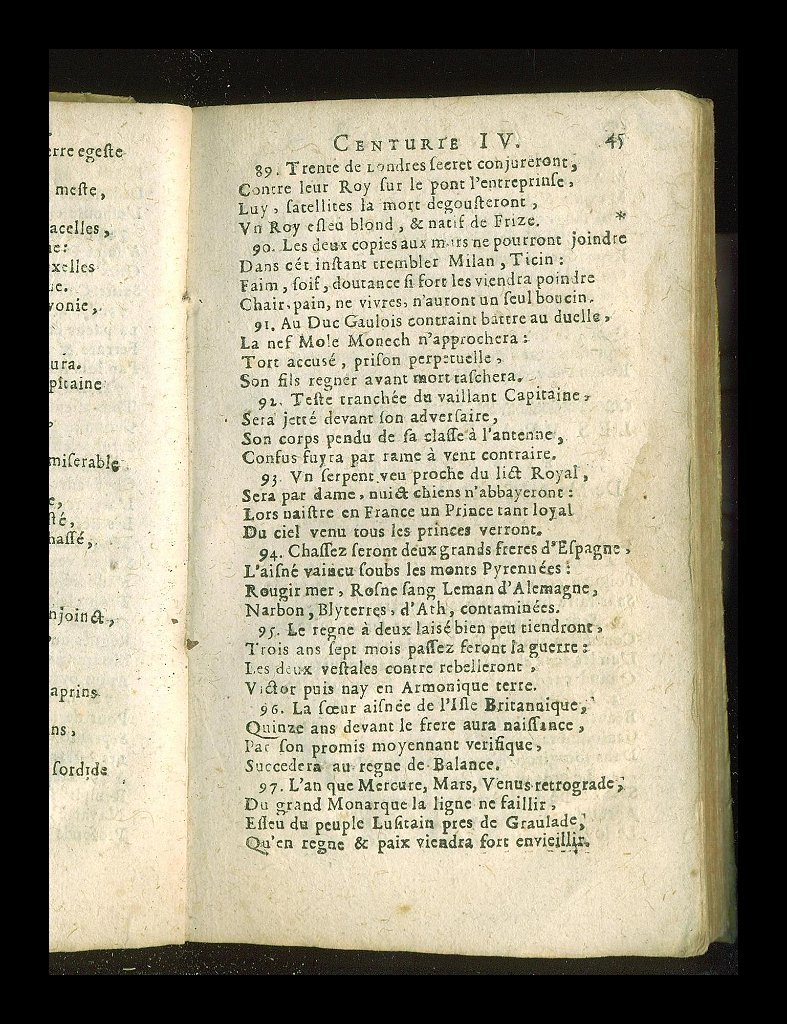 erre egeste
meste,
acelles,
ue:
xelles
ue.
vonie,
ura.
pitaine
,
miserable
e,
sté,
hassé,
njoinct,
,
aprins
ns,
sordide
CENTURIE IV. 45
89. Trente de Londres secret conjureront,
Contre leur Roy sur le pont l'entreprinse,
Luy, satellites la mort degousteront,
Vn Roy esleu blond, & natif de Frize. *
90. Les deux copies aux murs ne pourront joindre
Dans cét instant trembler Milan, Ticin:
Faim, soif, doutance si fort les viendra poindre
Chair, pain, ne vivres, n'auront un seul boucin.
91. Au Duc Gaulois contraint battre au duelle,
La nef Mole Monech n'approchera:
Tort accusé, prison perpetuelle,
Son fils regner avant mort taschera.
92. Teste tranchée du vaillant Capitaine,
Sera jetté devant son adversaire,
Son corps pendu de sa classe à l'antenne,
Confus fuyra par rame à vent contraire.
93. Vn serpent veu proche du lict Royal,
Sera par dame, nuict chiens n'abbayeront:
Lors naistre en France un Prince tant loyal
Du ciel venu tous les princes verront.
94. Chassez seront deux grands freres d'Espagne,
L'aisné vaincu soubs les monts Pyrennées:
Rougir mer, Rosne sang Leman d'Alemagne,
Narbon, Blyterres, d'Ath, contaminées.
95. Le regne à deux laisé bien peu tiendront,
Trois ans sept mois passez feront la guerre:
Les deux vestales contre rebelleront,
Victor puis nay en Armonique terre.
96. La sœur aisnée de l'Isle Britannique,
Quinze ans devant le frere aura naissance,
Par son promis moyennant verifique,
Succedera au regne de Balance.
97. L'an que Mercure, Mars, Venus retrograde,
Du grand Monarque la ligne ne faillir,
Esleu du peuple Lusitain pres de Graulade,
Qu'en regne & paix viendra fort envieillir.